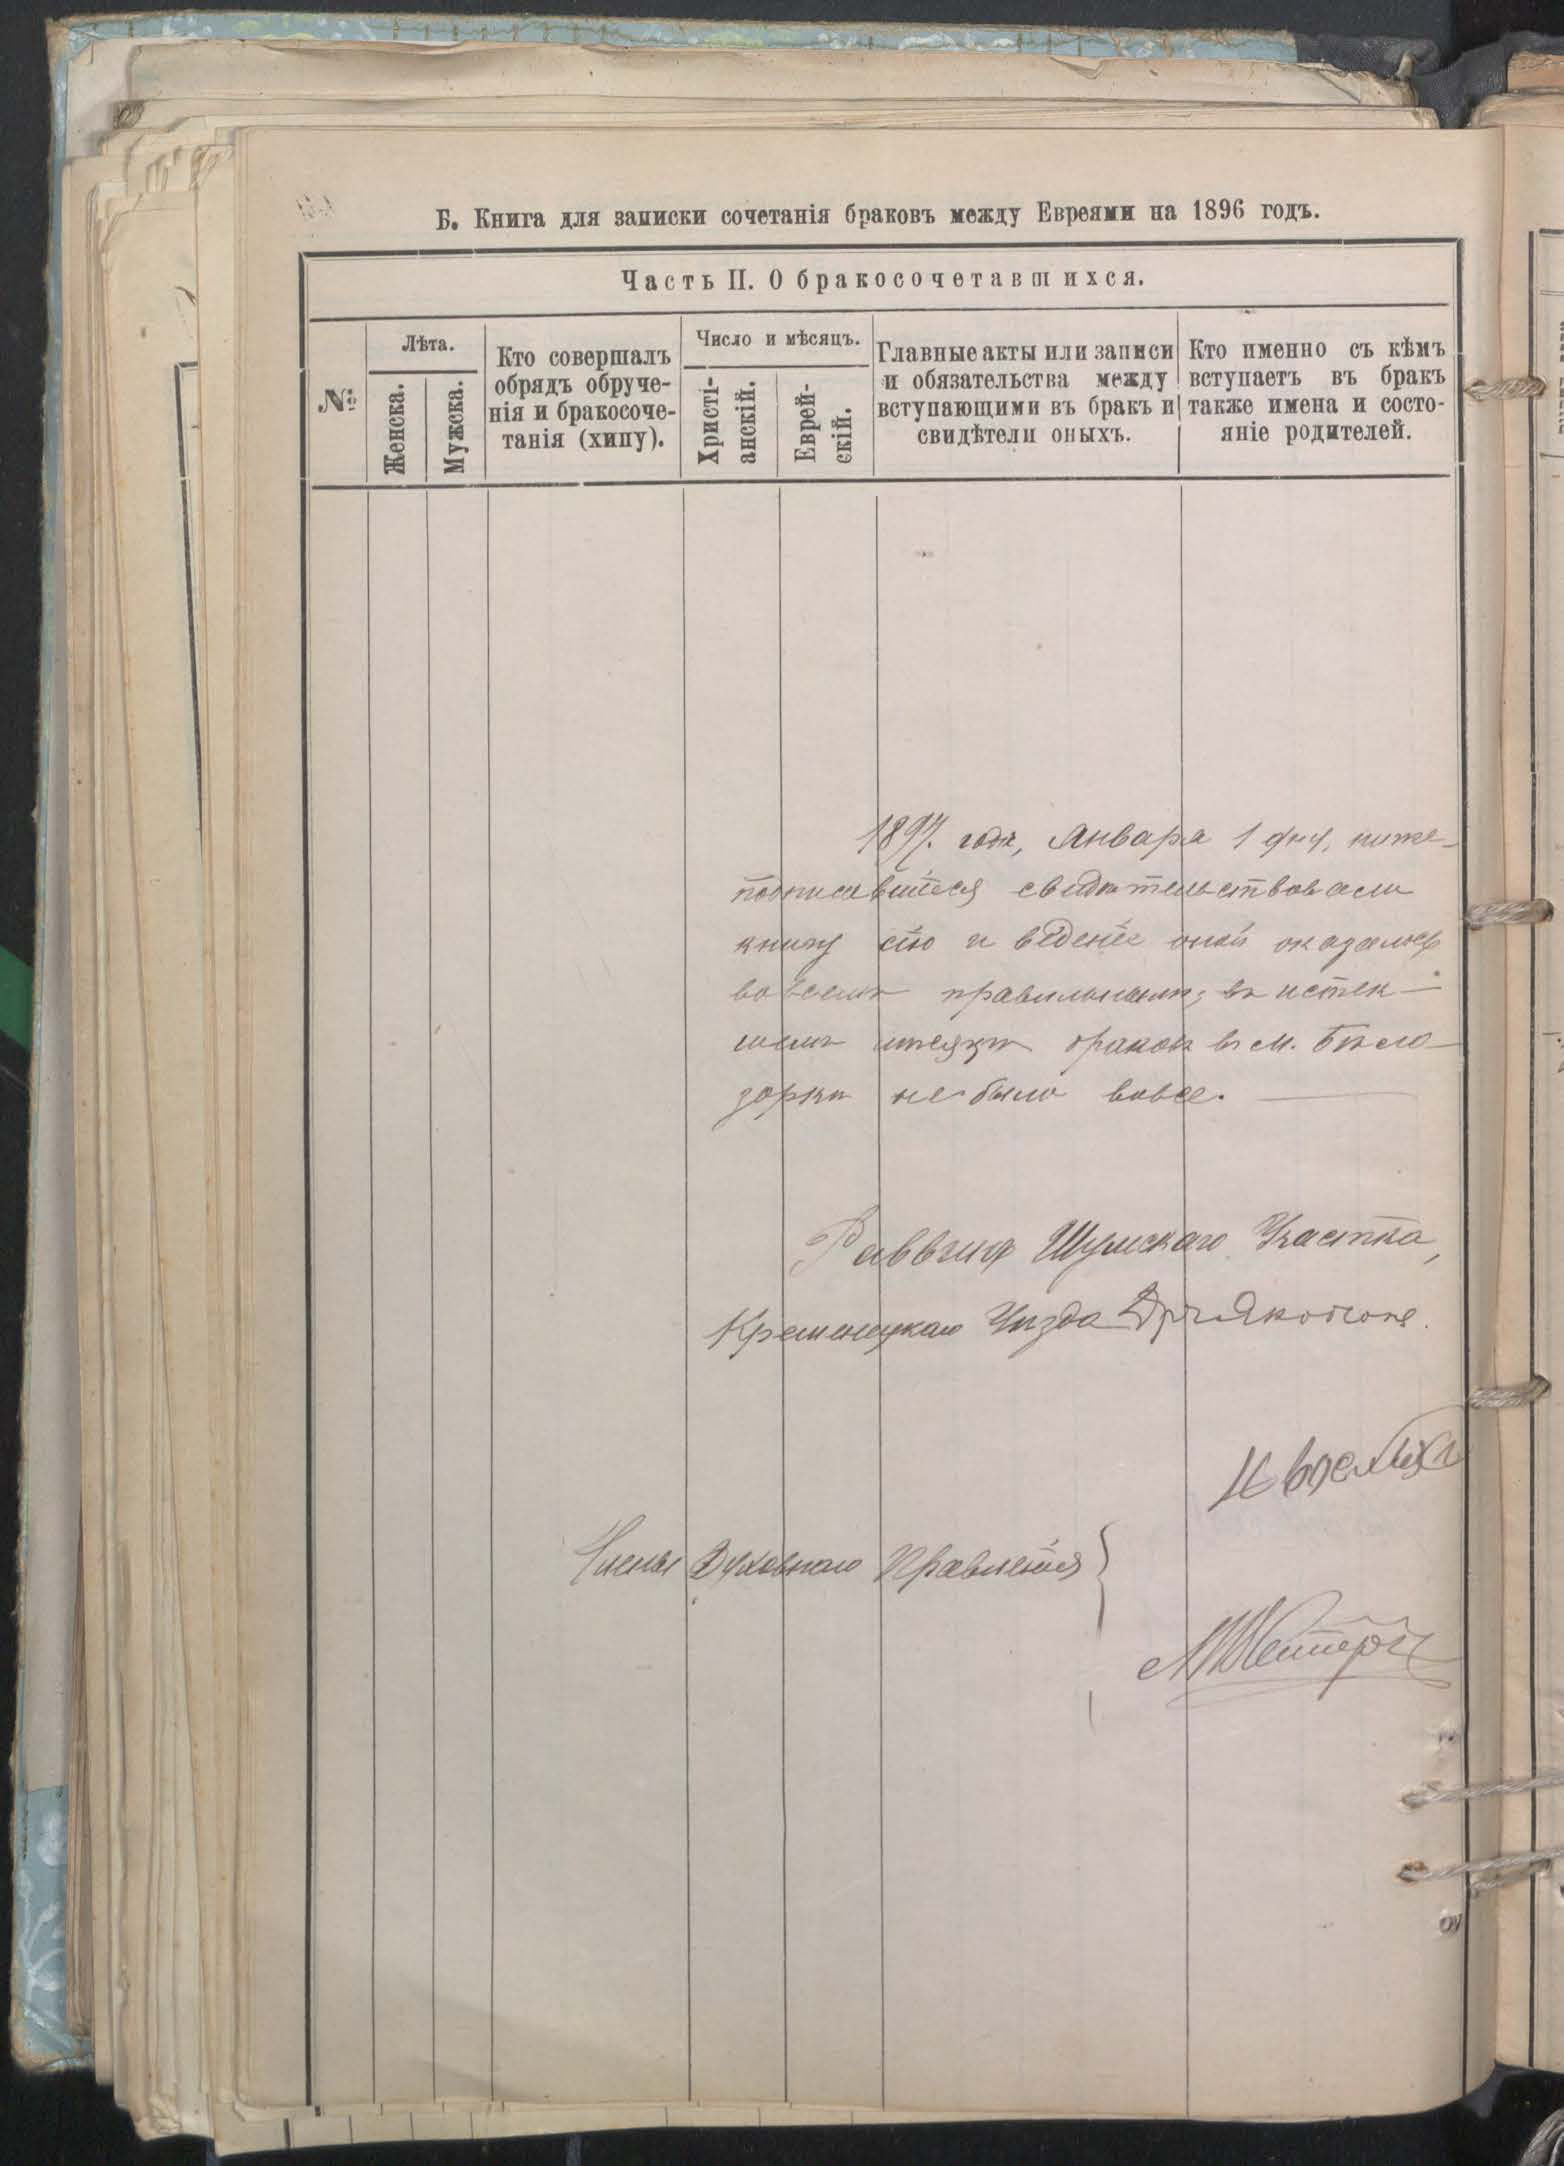 Б. Книга для записки сочетанія браковъ между Евреями на 1896 годъ.
Часть II. О бракосочетавшихся.
№
Лѣта.
Женска.
Мужска.
Кто совершалъ
обрядъ обруче-
нія и бракосоче-
танія (хипу).
Число и мѣсяцъ.
Христі-
анскій.
Еврей-
скій.
Главные акты или записи
и обязательства между
вступающими въ бракъ и
свидѣтели оныхъ.
Кто именно съ кѣмъ
вступаетъ въ бракъ
также имена и состо-
яніе родителей.
1897. года, Января 1 дня, ниже-
подписавшіеся свидѣтельствовали
книгу сію и веденіе оной оказалось
во всемъ правильнымъ; въ истек-
шемъ мѣсяцѣ браковъ въ м. Бѣло-
зоркѣ не было вовсе.
Раввинъ Шумскаго Участка,
Кременецкаго Уѣзда Др. Якобсонъ.
Члены Духовнаго Правленія